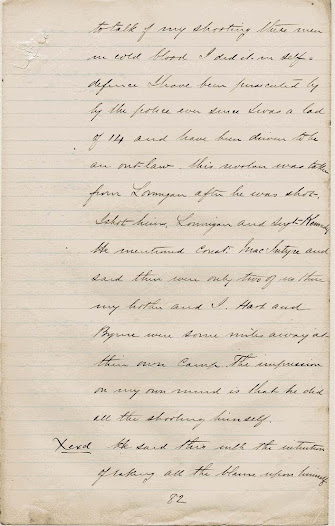 to talk of my shooting these men
in cold blood I did it in self=
defence I have been persecuted by
by the police ever since I was a lad
of 14 and have been driven to be
an outlaw. This revolver was taken
from Lonnigan after he was shot.
I shot him, Lonnigan and Sergt Kennedy
He mentioned Const. MacIntyre and
said there were only two of us there
my brother and I. Hart and
Byrne were some miles away at
their own Camp. The impression
on my own mind is that he did
all the shooting himself.
Xexd He said this with the intention
of taking all the blame upon himself
82